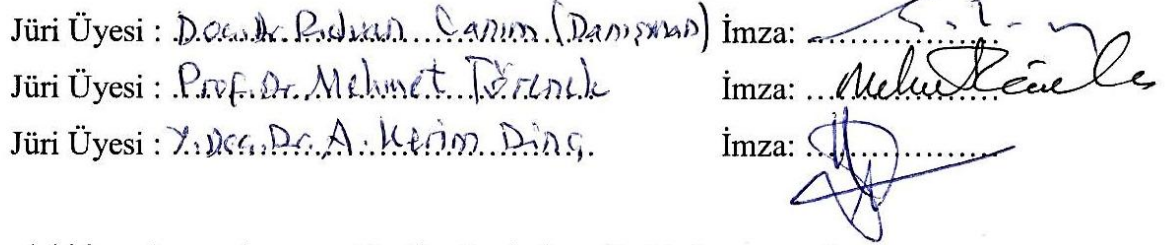 Jüri Üyesi : Doç. Dr. Rıdvan Canım (Danışman) İmza:
Jüri Üyesi : Prof. Dr. Mehmet Törenek İmza:
Jüri Üyesi : Y. Doç. Dr. A. Kerim Dinç. İmza: